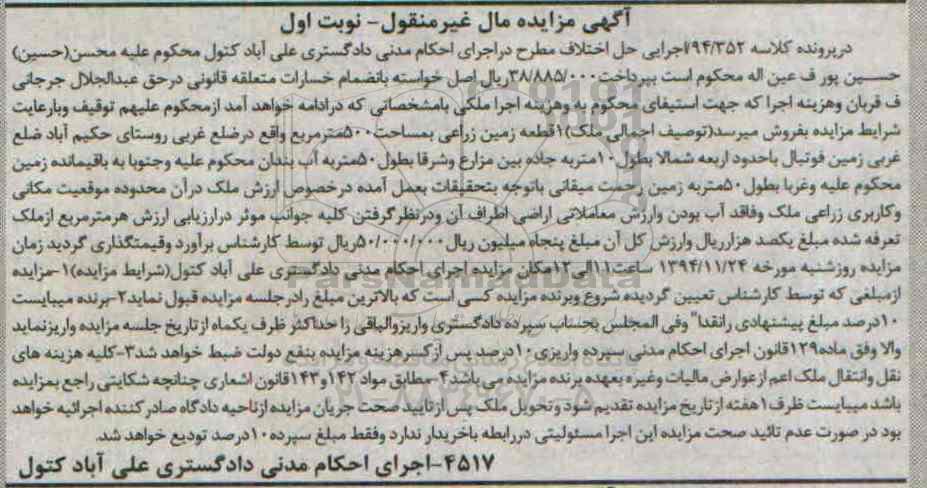 آگهی مزایده مال غیرمنقول- نوبت اول
درپرونده کلاسه ۹۴/۳۵۲/اجرایی حل اختلاف مطرح دراجرای احکام مدنی دادگستری علی آباد کتول محکوم علیه محسن(حسین)
حسین پور ف عین اله محکوم است بپرداخت۳۸/۸۸۵/۰۰۰ریال اصل خواسته بانضمام خسارات متعلقه قانونی درحق عبدالجلال جرجانی
ف قربان وهزینه اجرا که جهت استیفای محکوم به وهزینه اجرا ملکی بامشخصاتی که درادامه خواهد آمد ازمحکوم علیهم توقیف وبارعایت
شرایط مزایده بفروش میرسد(توصیف اجمالی ملک)۱قطعه زمین زراعی بمساحت۵۰۰مترمربع واقع درضلع غربی روستای حکیم آباد ضلع
غربی زمین فوتبال باحدود اربعه شمالا بطول۱۰متربه جاده بین مزارع وشرقا بطول۵۰متربه آب بندان محکوم علیه وجنوبا به باقیمانده زمین
محکوم علیه وغربا بطول۵۰متربه زمین رحمت میقانی باتوجه بتحقیقات بعمل آمده درخصوص ارزش ملک درآن محدوده موقعیت مکانی
وکاربری زراعی ملک وفاقد آب بودن وارزش معاملاتی اراضی اطراف آن ودرنظرگرفتن کلیه جوانب موثر درارزیابی ارزش هرمترمربع ازملک
تعرفه شده مبلغ یکصد هزارریال وارزش کل آن مبلغ پنجاه میلیون ریال۵۰/۰۰۰/۰۰۰ریال توسط کارشناس برآورد وقیمتگذاری گردید زمان
مزایده روزشنبه مورخه ۱۳۹۴/۱۱/۲۴ ساعت۱۱الی۱۲مکان مزایده اجرای احکام مدنی دادگستری علی آباد کتول(شرایط مزایده)۱-مزایده
ازمبلغی که توسط کارشناس تعیین گردیده شروع وبرنده مزایده کسی است که بالاترین مبلغ رادرجلسه مزایده قبول نماید۲-برنده میبایست
۱۰درصد مبلغ پیشنهادی رانقدا" وفی المجلس بحساب سپرده دادگستری واریزوالباقی را حداکثر ظرف یکماه ازتاریخ جلسه مزایده واریزنماید
والا وفق ماده۱۲۹قانون اجرای احکام مدنی سپرده واریزی۱۰درصد پس ازکسرهزینه مزایده بنفع دولت ضبط خواهد شد۳-کلیه هزینه های
نقل وانتقال ملک اعم ازعوارض مالیات وغیره بعهده برنده مزایده می باشد۴-مطابق مواد ۱۴۲و۱۴۳قانون اشعاری چنانچه شکایتی راجع بمزایده
باشد میبایست ظرف۱هفته ازتاریخ مزایده تقدیم شود وتحویل ملک پس ازتایید صحت جریان مزایده ازناحیه دادگاه صادرکننده اجرائیه خواهد
بود در صورت عدم تائید صحت مزایده این اجرا مسئولیتی دررابطه باخریدار ندارد وفقط مبلغ سپرده۱۰درصد تودیع خواهد شد.
۴۵۱۷-اجرای احکام مدنی دادگستری علی آباد کتول
ParsNamadData